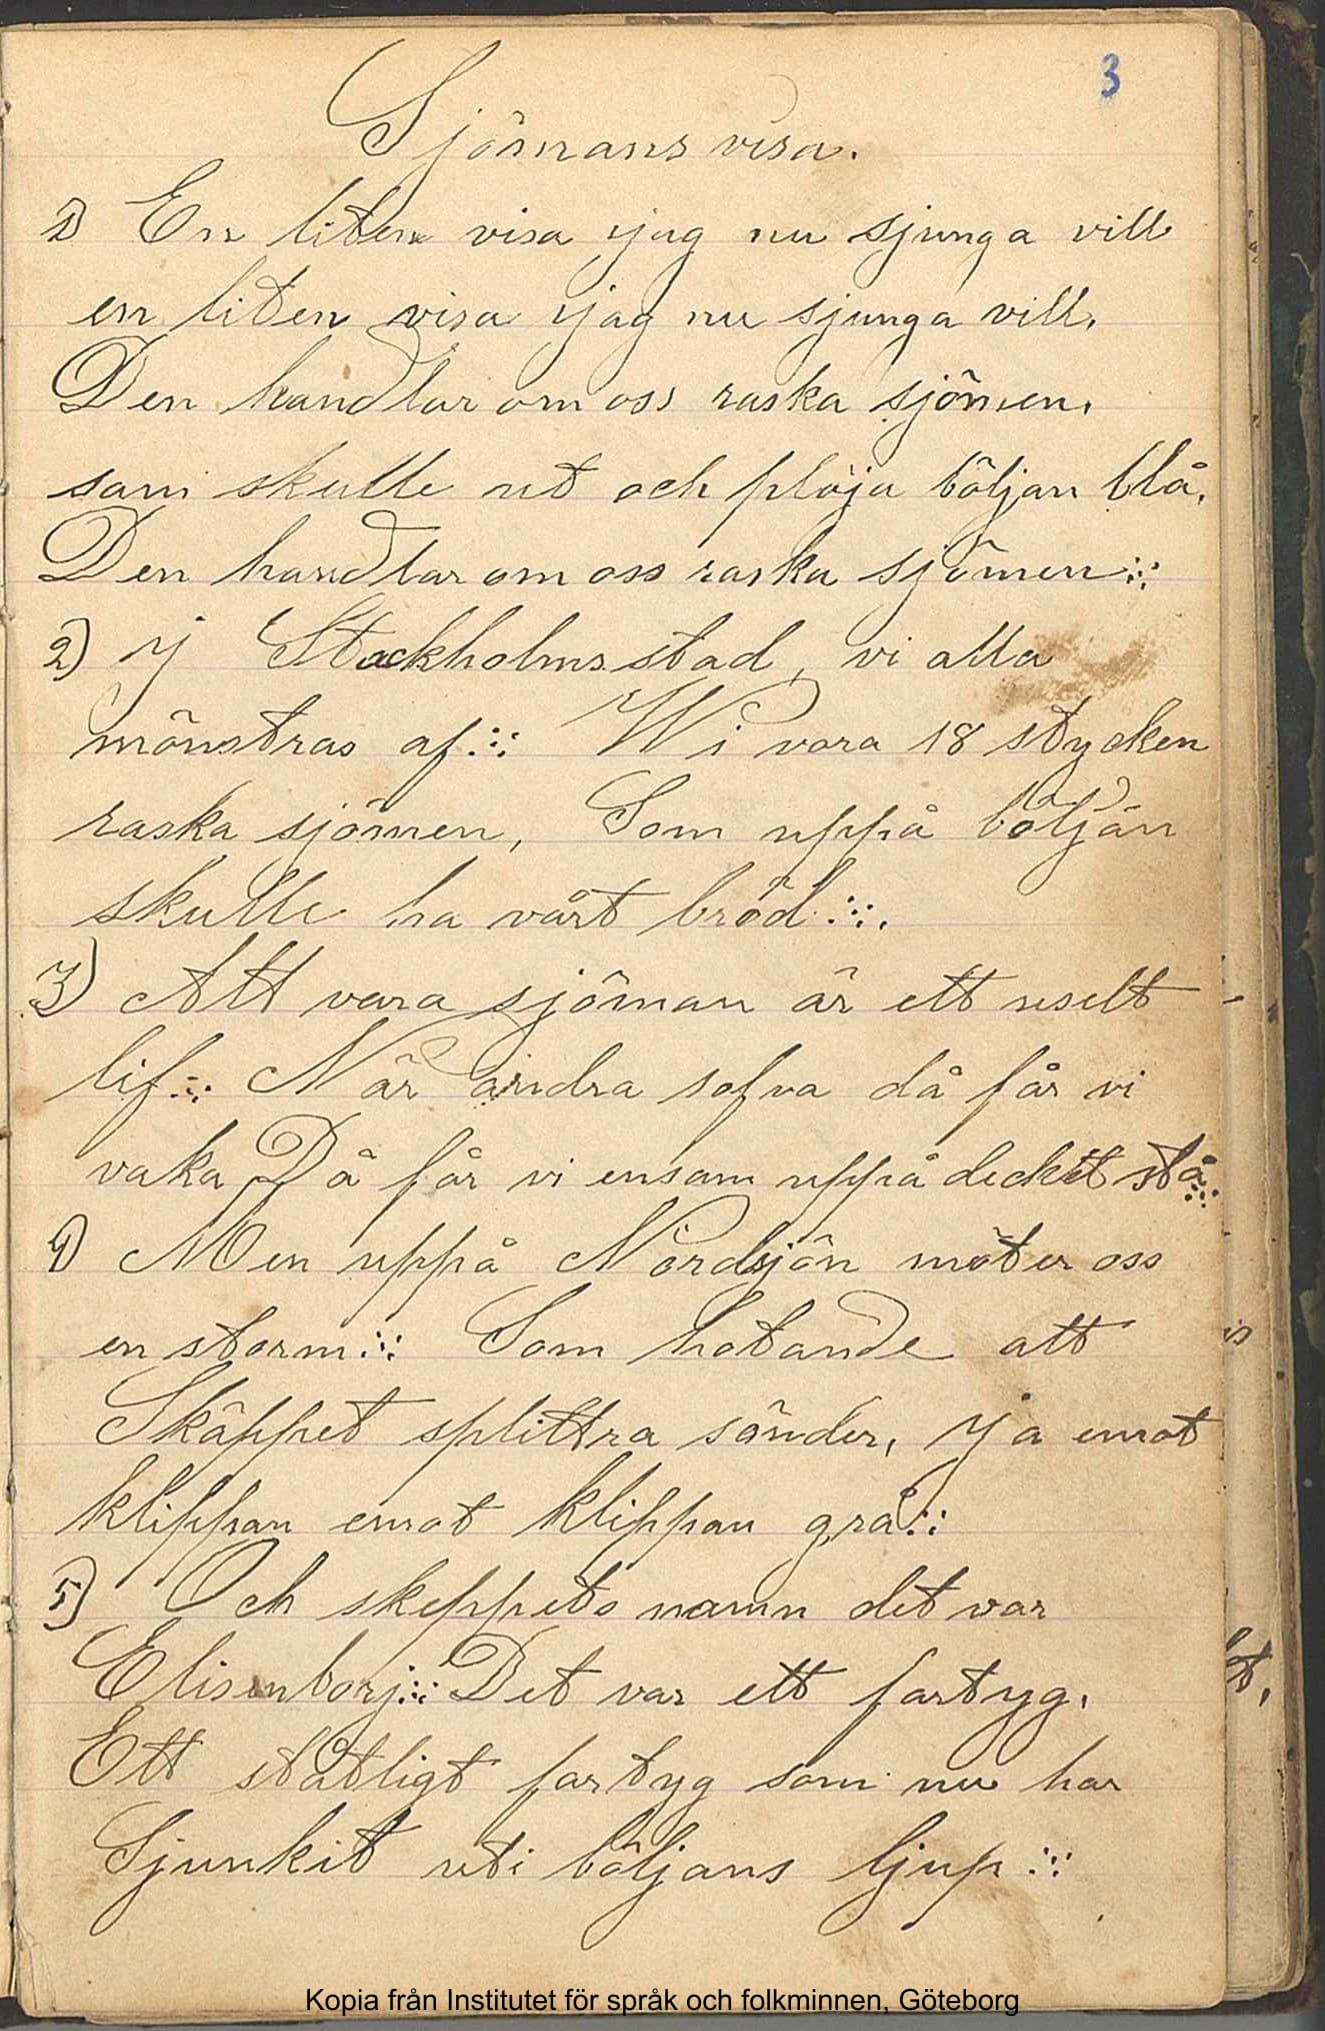 3
Sjömans visa.
1) En liten visa jag nu sjunga vill
en liten visa jag nu sjunga vill.
Den handlar om oss raska sjömen.
som skulle ut och plöja böljan blå.
Den handlar om oss raska sjömen :::
2) I Stockholms stad, vi alla
mönstras af ::: Wi vora 18 stycken
raska sjömen, Som uppå böljan
skulle ha vårt bröd :::.
3) Att vara sjöman är ett uselt
lif ::: När andra sofva då får vi
vaka Då får vi ensam uppå decket stå :::
4) Men uppå Nordsjön möter oss
en storm ::: Som hotande att
Skäppet splittra sönder, Ja emot
klippan emot klippan grå :::
5) Och skeppets namn det var
Elisenborj ::: Det var ett fartyg.
Ett ståtligt fartyg som nu har
Sjunkit uti böljans ljup :::
Kopia från Institutet för språk och folkminnen, Göteborg